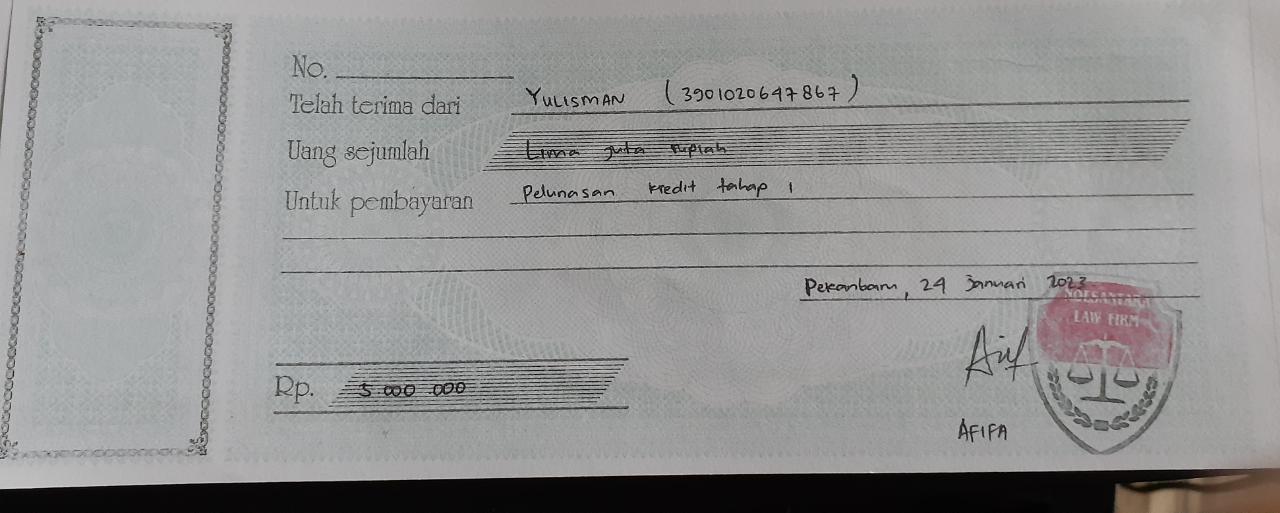 No.
Telah terima dari YULISMAN (3901020647867)
Uang sejumlah Lima juta rupiah
Untuk pembayaran Pelunasan kredit tahap 1
Pekanbaru, 24 Januari 2023
NOESANTARA
LAW FIRM
Rp. 5 000 000
AFIFA